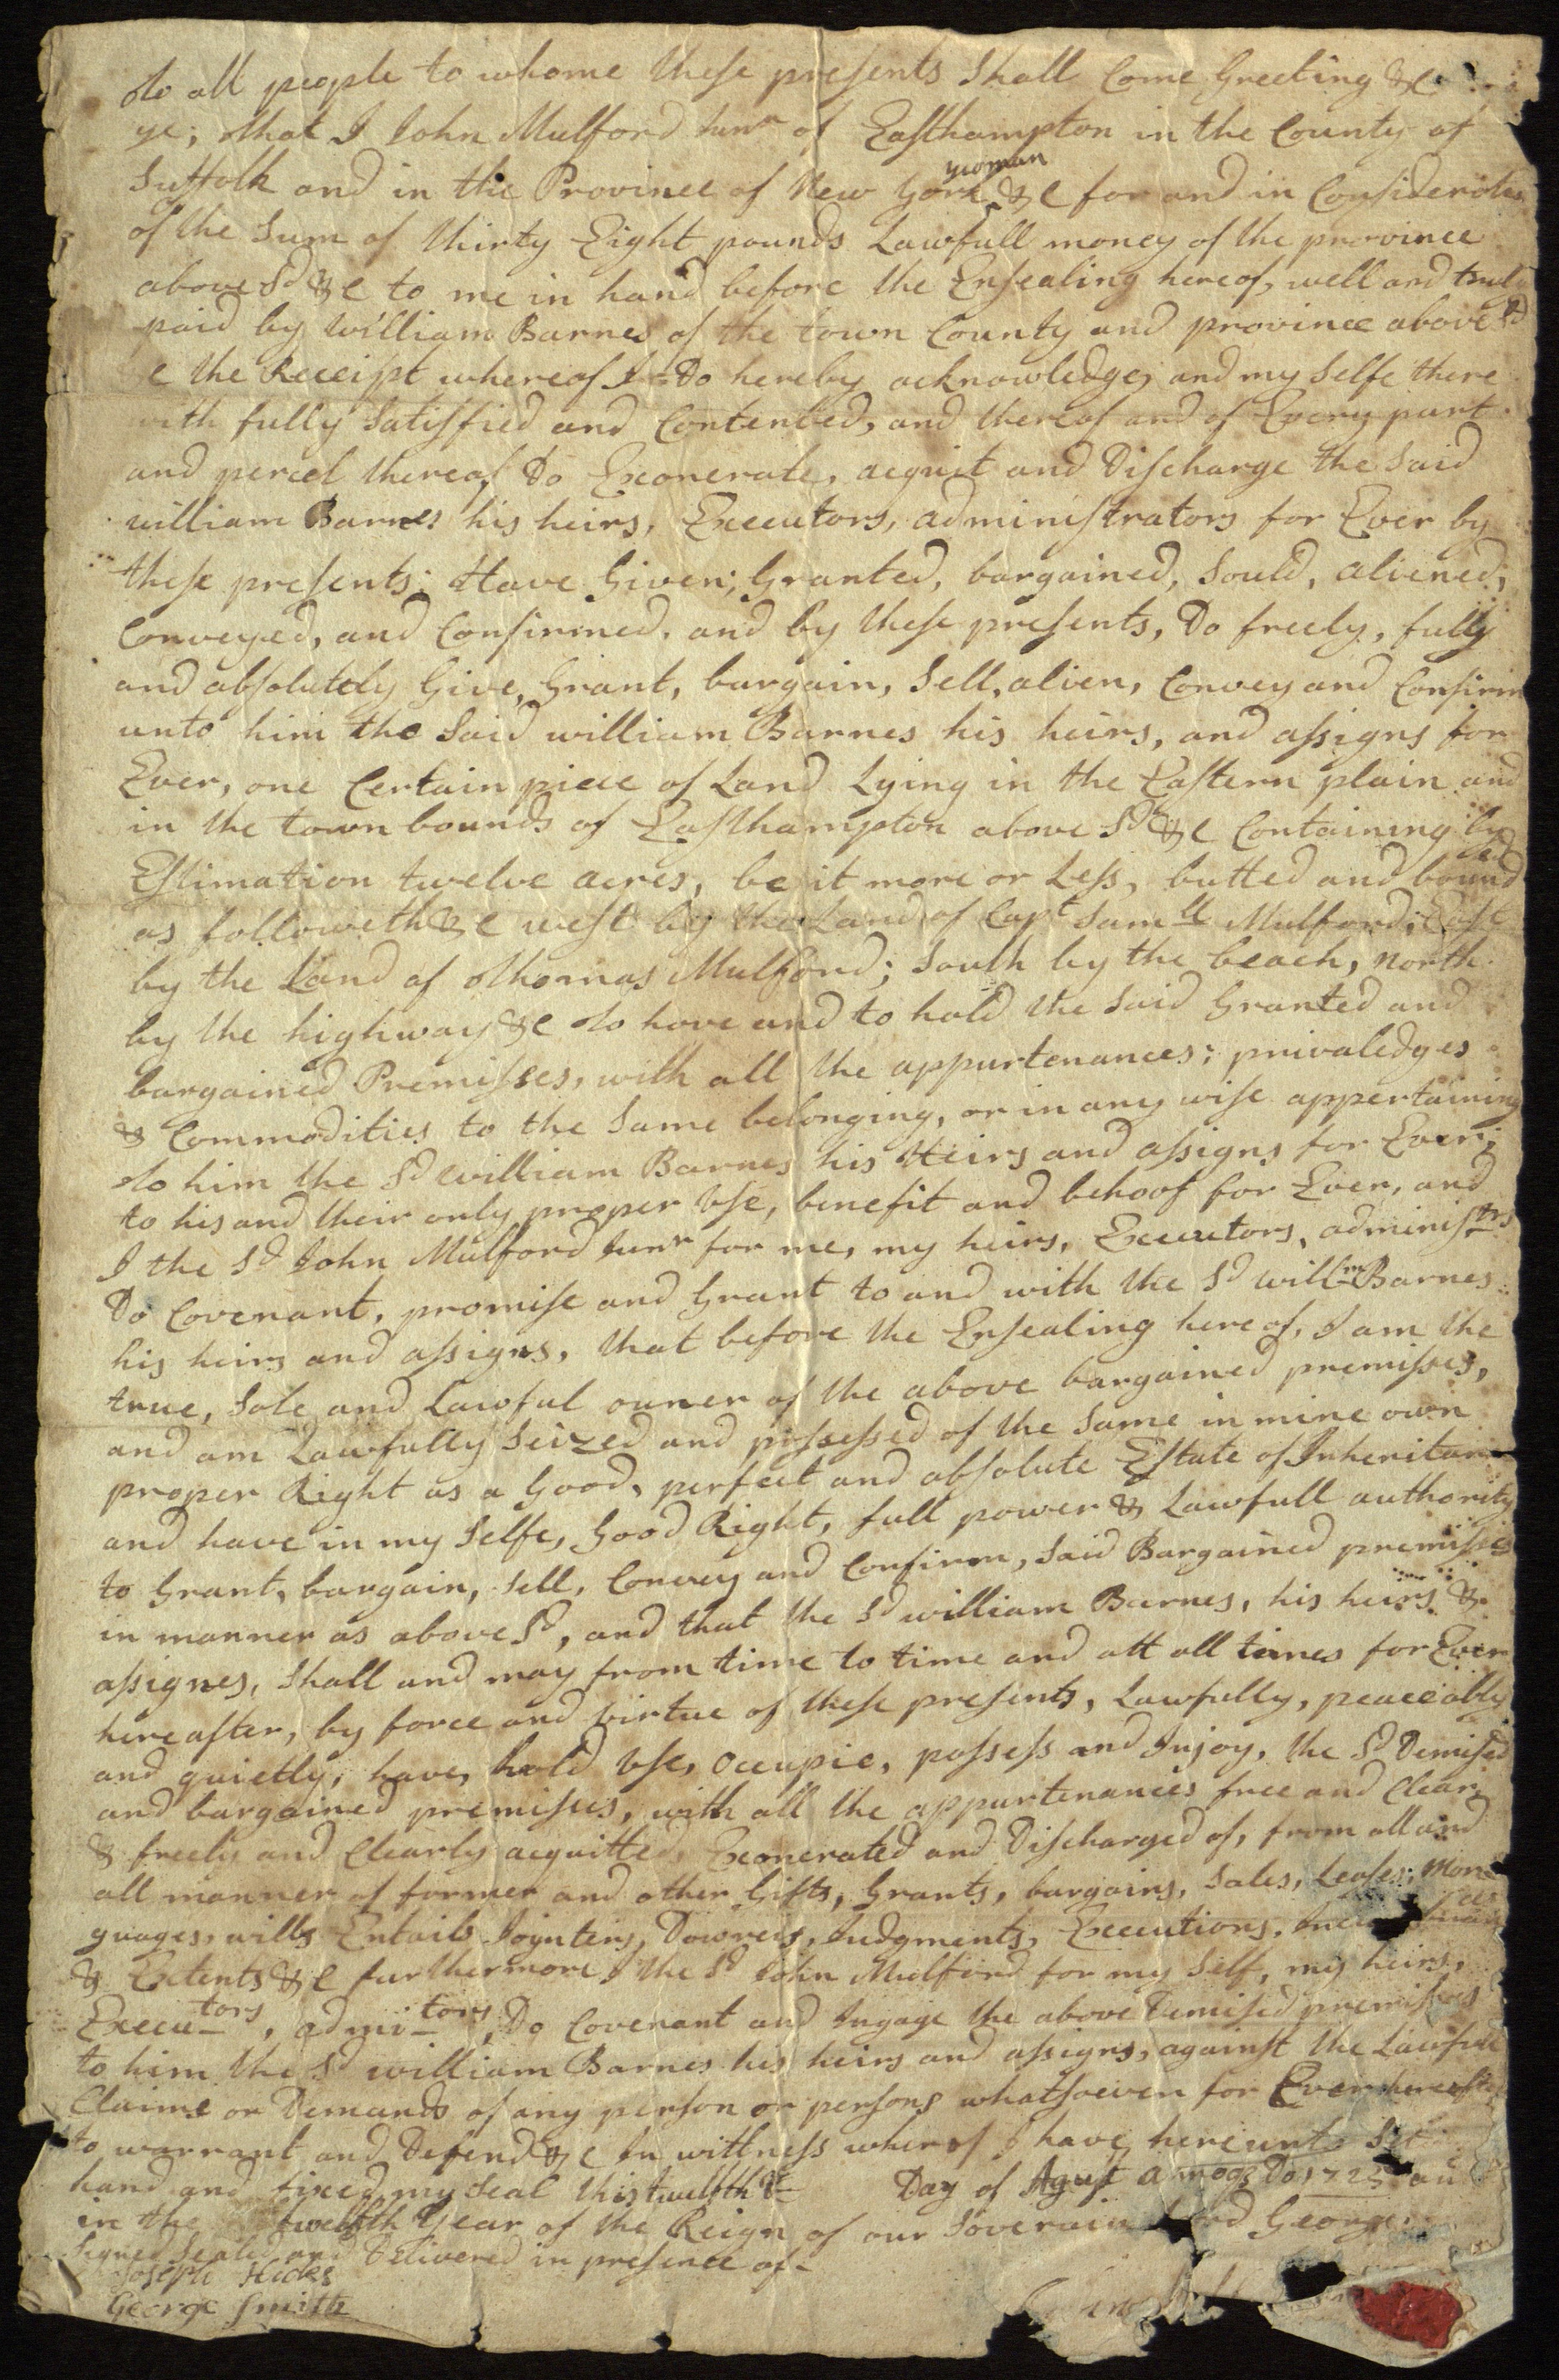 To all people to whome these presents Shall Come Greeting &c
ye; that I John Mulford Junr of Easthampton in the County of
yeoman
Suffolk and in the Province of New York &c for and in Consideratio
of the Sum of thirty Eight pounds Lawfull money of the province
above Sd &c to me in hand before the Ensealing hereof, well and truly
paid by William Barnes of the town County and province above Sd
c the Receipt whereof I Do hereby acknowledge, and my Selfe there
with fully Satisfied and Contented, and thereof and of Every part
and percel thereof Do Exonerate, acquit and Discharge the Said
william Barnes his heirs, Executors, administrators for Ever by
these presents; Have Given; Granted, bargained, Sould, aliened,
Conveyed, and Confirmed, and by these presents, Do freely, fully
and absolutely Give, Grant, bargain, Sell, alien, Convey and Confirm
unto him the Said william Barnes his heirs, and assigns for
Ever, one Certain piece of Land Lying in the Eastern plain and
in the town bounds of Easthampton above Sd &c Containing by
Estimation twelve acres, be it more or Less, butted and bounded
as followeth &c west by the Land of Capt Samll Mulford; East
by the Land of Thomas Mulford; South by the beach, north
by the highway &c To have and to hold the Said Granted and
bargained Premisses, with all the appurtenances; privaledges
& Commodities to the Same belonging, or in any wise appertaining
To him the Sd william Barnes his Heirs and assigns for Ever;
to his and their only proper Use, benefit and behoof for Ever, and
I the Sd John Mulford Junr for me, my heirs, Executors, administrs
Do Covenant, promise and Grant to and with the Sd willm Barnes
his heirs and assigns, that before the Ensealing hereof, I am the
true, Sole and Lawful owner of the above bargained premisses,
and am Lawfully Seized and possessed of the Same in mine own
proper Right as a Good, perfect and absolute Estate of Inheritan
and have in my Selfe, Good Right, full power & Lawfull authority
to Grant, bargain, Sell, Convey and Confirm, Said Bargained premisses
in manner as above Sd, and that the Sd william Barnes, his heirs &
assignes, Shall and may from time to time and att all times for Ever
hereafter, by force and virtue of these presents, Lawfully, peaceably
and quietly, have, hold Use, Occupie, possess and Injoy, the Sd Demised
and bargained premisses, with all the appurtenances free and Clear,
& freely and Clearly acquitted, Exonerated and Discharged of, from all and
all manner of former and other Gifts, Grants, bargains, Sales, Leases, Mor
guages, wills Entails Joynters, Dowreis, Judgments, Executions,
& Extents &c furthermore I the Sd John Mulford for my Self, my heirs,
Execu-tors, admi-tors, Do Covenant and Ingage the above Demised premisses
to him the Sd william Barnes his heirs and assigns, against the Lawfull
Claime or Demands of any person or persons whatsoever for Ever hereafter
to warrant and Defend &c In wittness wherof I have hereunto Set
hand and fixed my Seal this twelfth Day of Agust Domo 1725 an
in the twelfth Year of the Reign of our Soverain Lord George
Signed Sealed and Delivered in presence of-
Joseph Hicks
George Smith